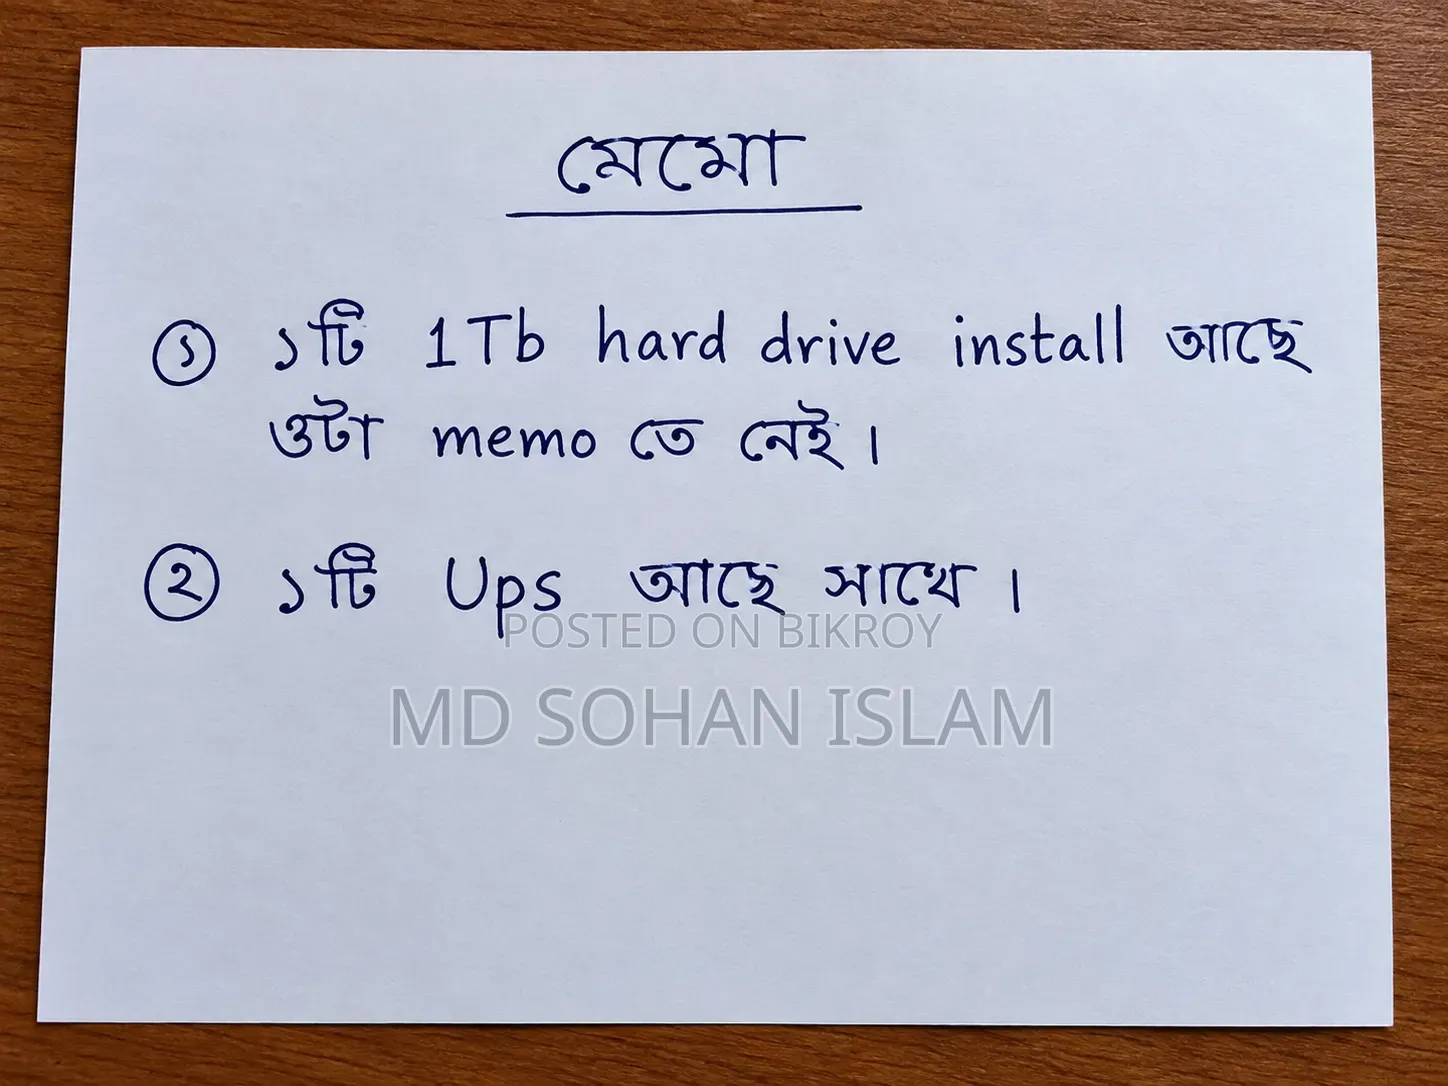 মেমো
① ১টি 1Tb hard drive install আছে
ওটা memo তে নেই।
② ১টি Ups আছে সাথে।
POSTED ON BIKROY
MD SOHAN ISLAM